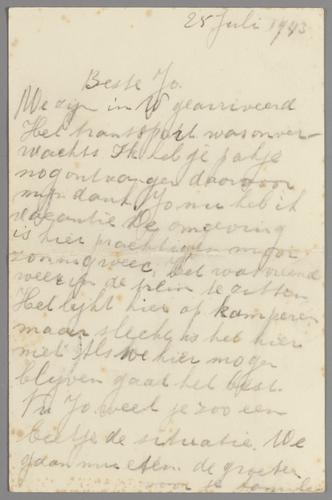 25 Juli 1943
Beste Jo.
We zijn in W gearriveerd
Het transport was onver-
wachts Ik heb je pakje
nog ontvangen daarvoor
mijn dank Jo nu heb ik
vacantie De omgeving
is hier prachtig en mooi
zonnig weer, Het was vreemd
weer in de trein te zitten
Het lijkt hier op kamperen
maar slecht is het hier
niet Als we hier mogen
blijven gaat het best.
Nu Jo weet je zoo een
beetje de situatie. We
gaan nu eten. de groeten
voor je familie